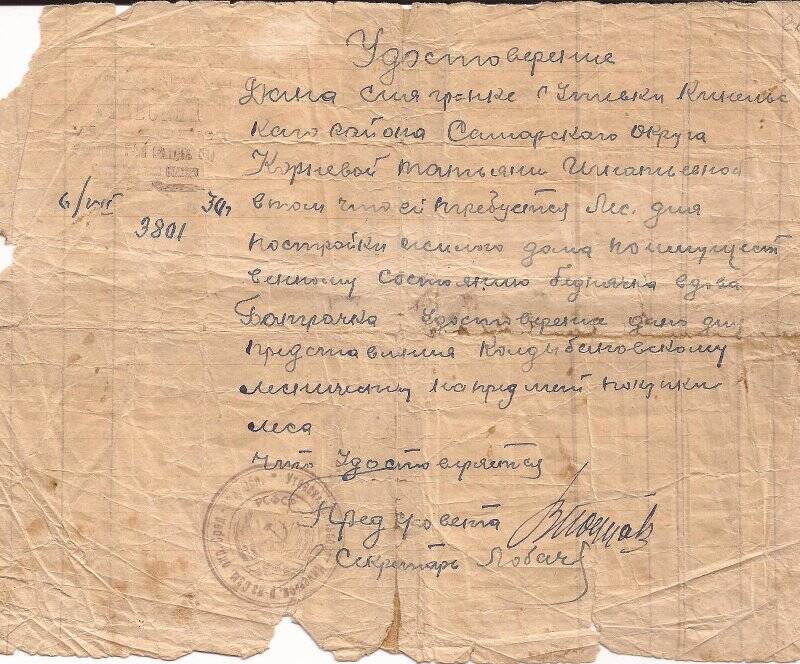 Удостоверение
Дана сия гр-нке с Утевки Кинельс
кого района Самарского округа
Корневой Татьяни Игнатьевной
6/VIII 30г втом что ей требуется Лес. для
3801
постройки жилого дома по имущест
венному состоянию беднячка вдова
Батрачка Удостоверение дано для
представления Колдыбановскому
лесничему на предмет покупки
леса
что Удостоверяется
Пред совета
Секретарь Лобач
РСФСР